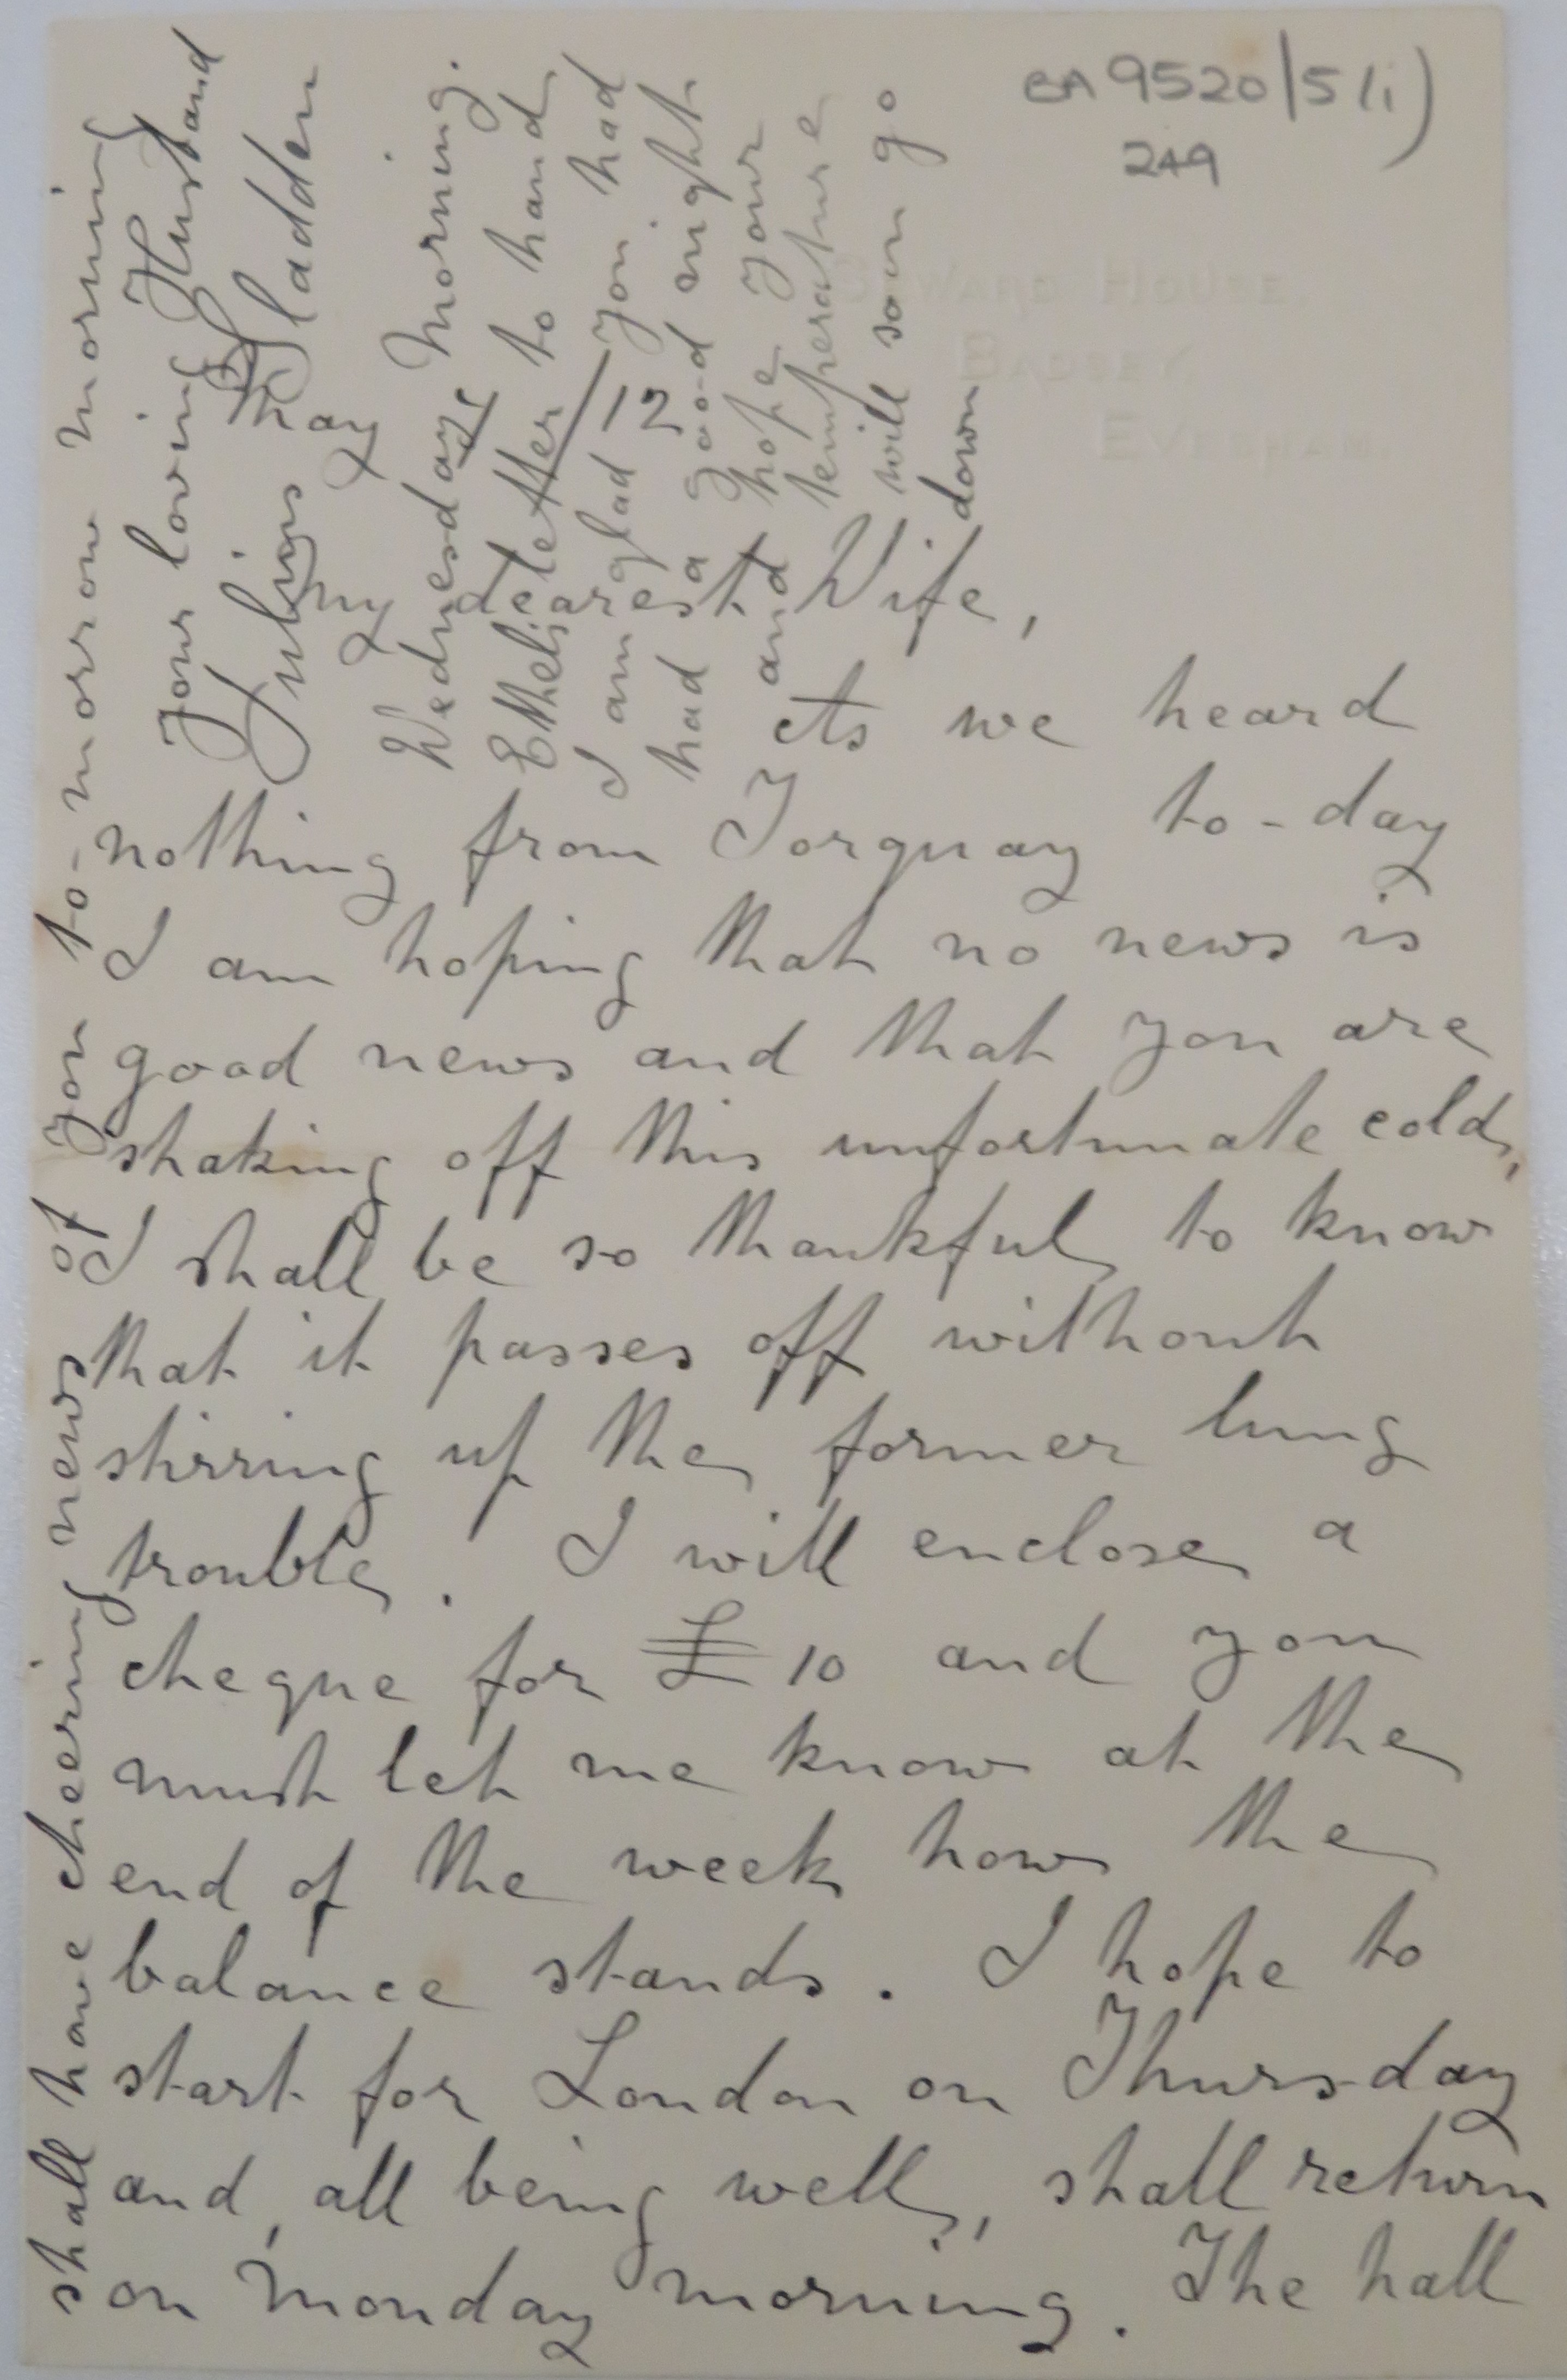 BA 9520/5(i)
249
SEWARD HOUSE,
BADSEY,
EVESHAM.
May 7/12
My dearest Wife,
As we heard
nothing from Torquay to-day
I am hoping that no news is
good news and that you are
shaking off this unfortunate cold,
I shall be so thankful to know
that it passes off without
stirring up the former lung
trouble. I will enclose a
cheque for £10 and you
must let me know at the
end of the week how the
balance stands. I hope to
start for London on Thursday
and, all being well, shall return
on Monday morning. The hall
shall have cheering news of you to-morrow morning
Your loving Husband
Julius Sladden
Wednesday Morning.
Ethel's letter to hand
I am glad you had
had a good night
and hope your
temperature
will soon go
down